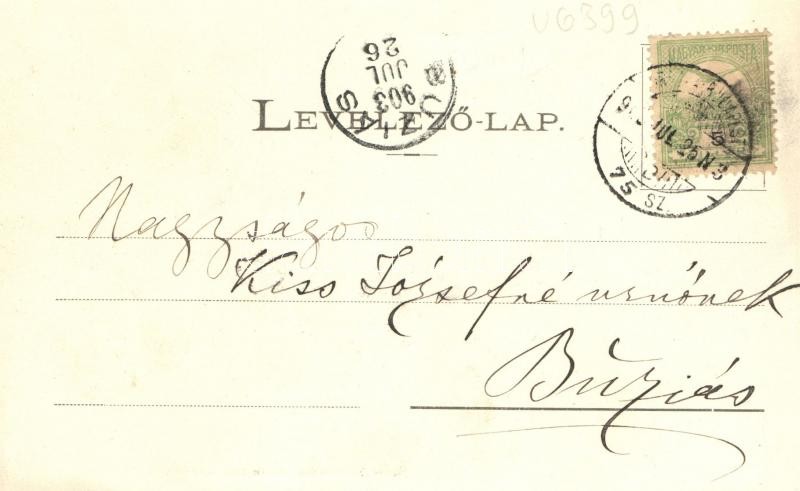 V6399
MAGYAR KIR. POSTA
BUZIÁS
903
JUL
26
LEVELEZŐ-LAP.
JUL. 25 N 8
5
75 SZ.
Nagyságos
Kiss Józsefné urnőnek
Buziás